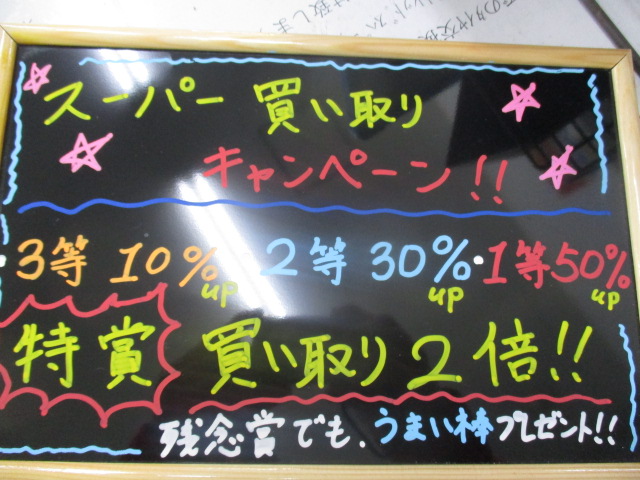 スーパー 買い取り
キャンペーン!!
3等 10%up・2等 30%up・1等50%up
特賞 買い取り2倍!!
残念賞でも、うまい棒プレゼント!!